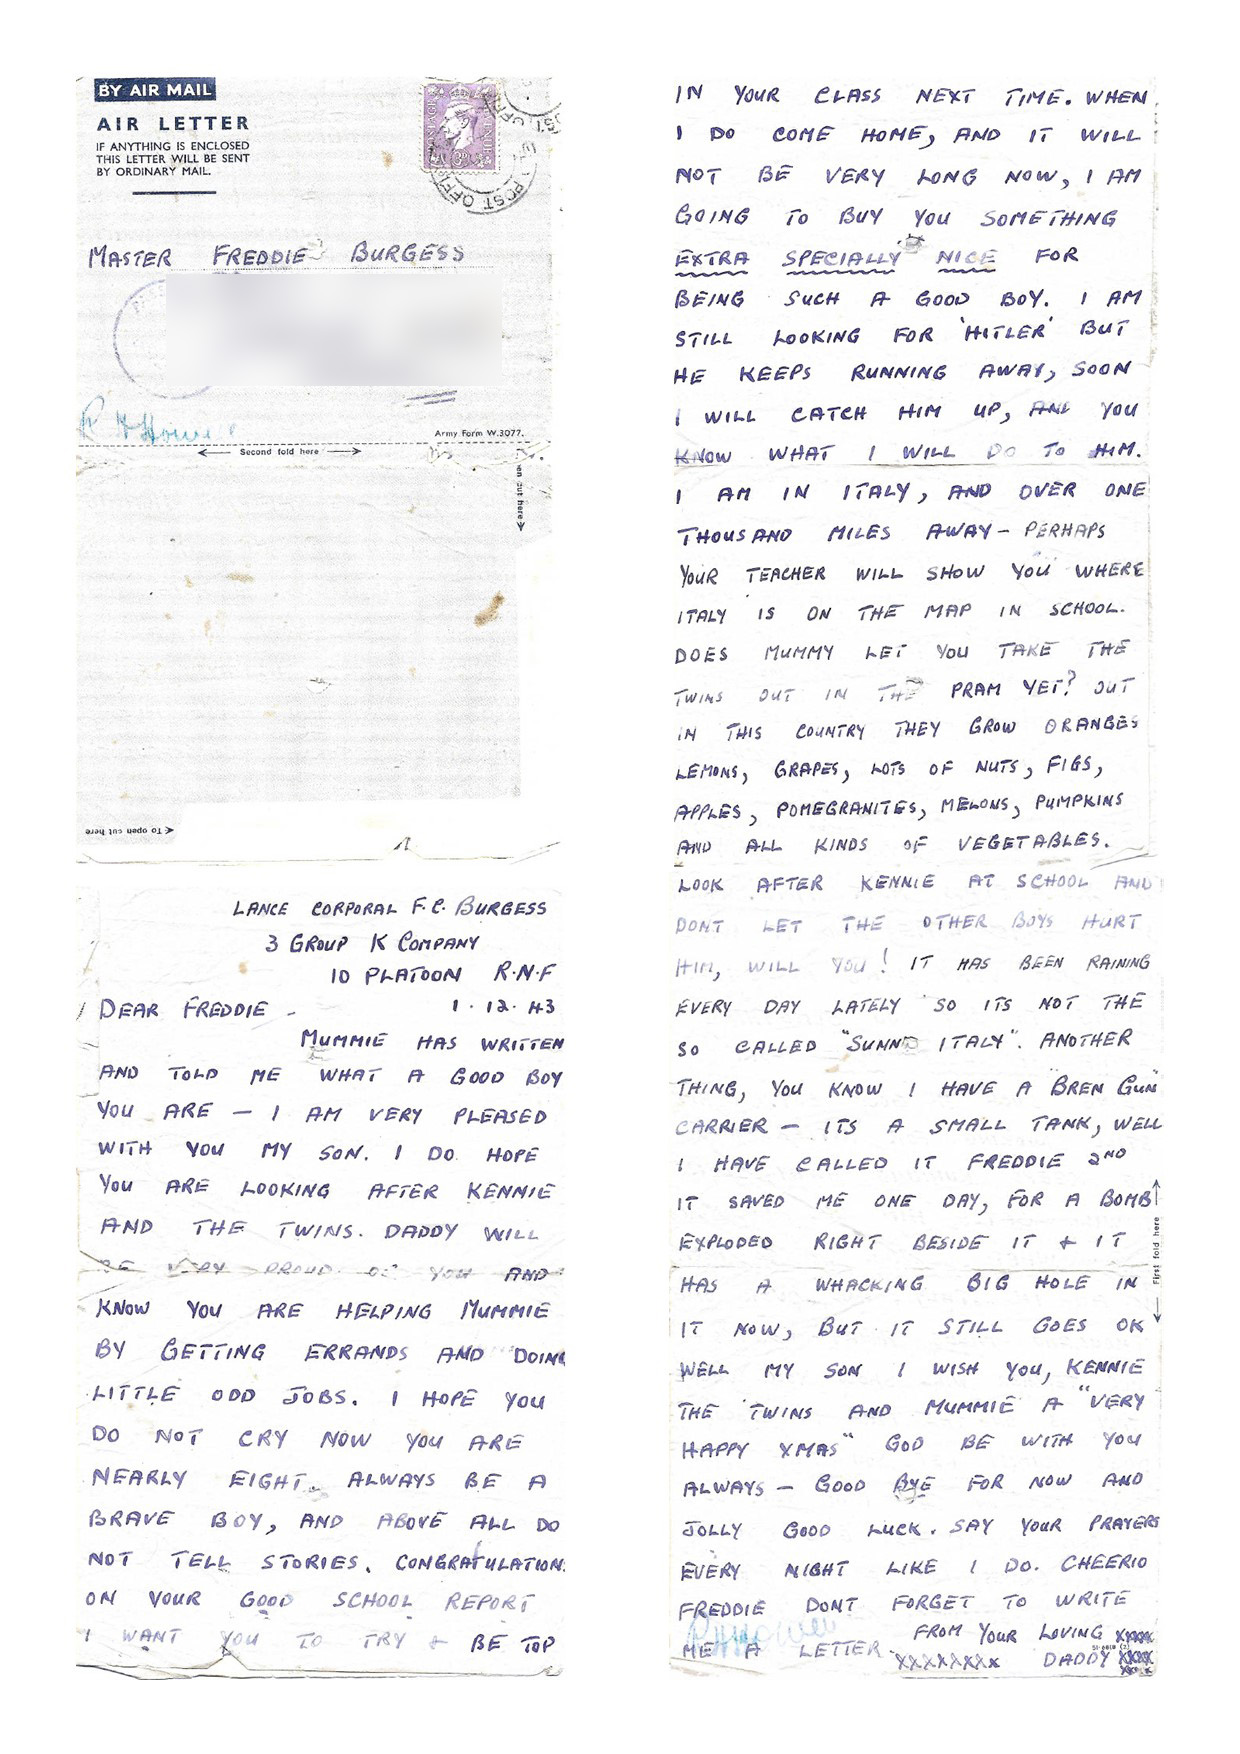 BY AIR MAIL
AIR LETTER
IF ANYTHING IS ENCLOSED
THIS LETTER WILL BE SENT
BY ORDINARY MAIL.
POST OFFICE
MASTER FREDDIE BURGESS
Army Form W.3077.
Second fold here
To open cut here
LANCE CORPORAL F.C. BURGESS
3 GROUP K COMPANY
10 PLATOON R.N.F
DEAR FREDDIE - 1.12.43
MUMMIE HAS WRITTEN
AND TOLD ME WHAT A GOOD BOY
YOU ARE — I AM VERY PLEASED
WITH YOU MY SON. I DO HOPE
YOU ARE LOOKING AFTER KENNIE
AND THE TWINS. DADDY WILL
BE VERY PROUD OF YOU AND
KNOW YOU ARE HELPING MUMMIE
BY GETTING ERRANDS AND DOING
LITTLE ODD JOBS. I HOPE YOU
DO NOT CRY NOW YOU ARE
NEARLY EIGHT. ALWAYS BE A
BRAVE BOY, AND ABOVE ALL DO
NOT TELL STORIES. CONGRATULATIONS
ON YOUR GOOD SCHOOL REPORT
I WANT YOU TO TRY + BE TOP
IN YOUR CLASS NEXT TIME. WHEN
I DO COME HOME, AND IT WILL
NOT BE VERY LONG NOW, I AM
GOING TO BUY YOU SOMETHING
EXTRA SPECIALLY NICE FOR
BEING SUCH A GOOD BOY. I AM
STILL LOOKING FOR 'HITLER' BUT
HE KEEPS RUNNING AWAY, SOON
I WILL CATCH HIM UP, AND YOU
KNOW WHAT I WILL DO TO HIM.
I AM IN ITALY, AND OVER ONE
THOUSAND MILES AWAY — PERHAPS
YOUR TEACHER WILL SHOW YOU WHERE
ITALY IS ON THE MAP IN SCHOOL.
DOES MUMMY LET YOU TAKE THE
TWINS OUT IN THE PRAM YET? OUT
IN THIS COUNTRY THEY GROW ORANGES
LEMONS, GRAPES, LOTS OF NUTS, FIGS,
APPLES, POMEGRANITES, MELONS, PUMPKINS
AND ALL KINDS OF VEGETABLES.
LOOK AFTER KENNIE AT SCHOOL AND
DONT LET THE OTHER BOYS HURT
HIM, WILL YOU! IT HAS BEEN RAINING
EVERY DAY LATELY SO ITS NOT THE
SO CALLED "SUNNY ITALY". ANOTHER
THING, YOU KNOW I HAVE A "BREN GUN
CARRIER — ITS A SMALL TANK, WELL
I HAVE CALLED IT FREDDIE 2ND
IT SAVED ME ONE DAY, FOR A BOMB
EXPLODED RIGHT BESIDE IT + IT
HAS A WHACKING BIG HOLE IN
First fold here
IT NOW, BUT IT STILL GOES OK
WELL MY SON I WISH YOU, KENNIE
THE TWINS AND MUMMIE A "VERY
HAPPY XMAS" GOD BE WITH YOU
ALWAYS — GOOD BYE FOR NOW AND
JOLLY GOOD LUCK. SAY YOUR PRAYERS
EVERY NIGHT LIKE I DO. CHEERIO
FREDDIE DONT FORGET TO WRITE
ME A LETTER FROM YOUR LOVING xxxx
xxxxxxxx DADDY xxxx